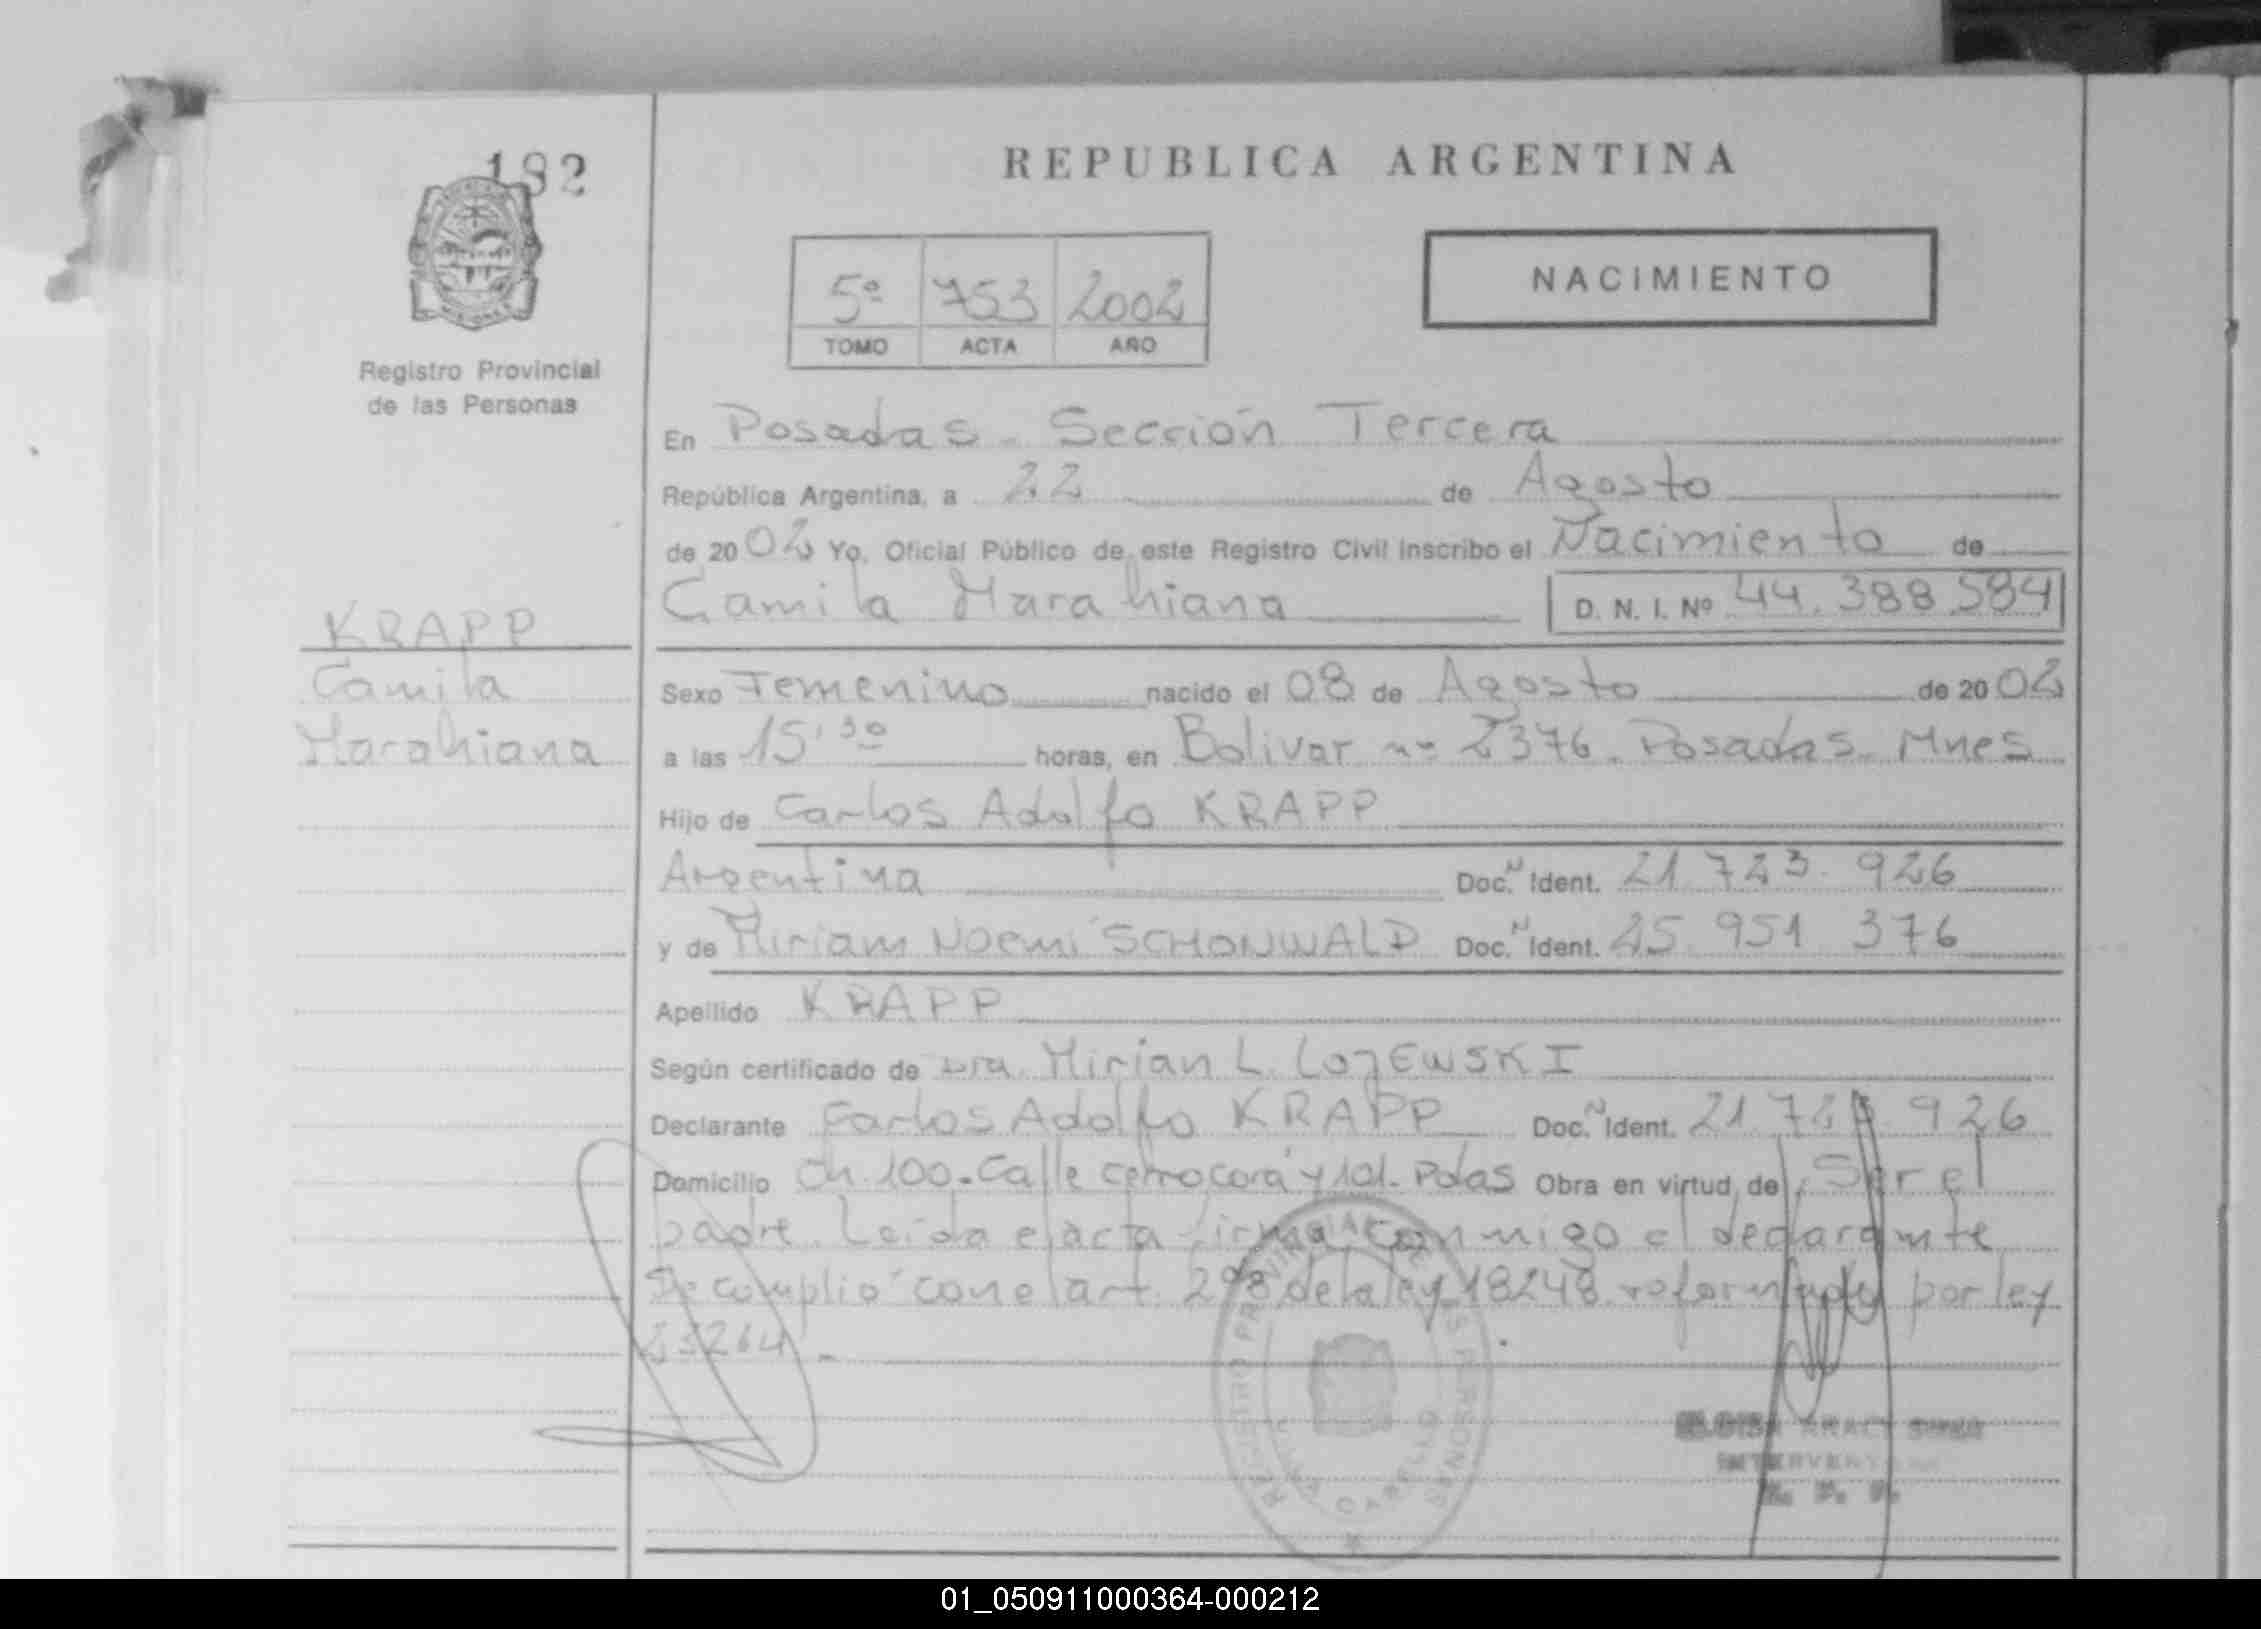 192
REPUBLICA ARGENTINA
NACIMIENTO
5º 753 2002
TOMO ACTA AÑO
Registro Provincial
de las Personas
En Posadas - Sección Tercera
República Argentina, a 22 de Agosto
de 2002 Yo, Oficial Público de este Registro Civil inscribo el Nacimiento de
Camila Marahiana D. N. I. Nº 44.388.584
KRAPP
Camila
Marahiana
Sexo Femenino nacido el 08 de Agosto de 2002
a las 15'30 horas, en Bolivar nº 2376. Posadas - Mnes
Hijo de Carlos Adolfo KRAPP
Argentina Doc. N Ident. 21.723.926
y de Miriam Noemi SCHONWALD Doc. N Ident. 25.951.376
Apellido KRAPP
Según certificado de Dra. Mirian L. LOJEWSKI
Declarante Carlos Adolfo KRAPP Doc. N Ident. 21.723.926
Domicilio Ch. 100 - Calle cerro corá y 101 - Pdas Obra en virtud de Ser el
padre. Leída el acta firma conmigo el declarante
Se cumplió con el art. 298 de la ley 18248 reformado por ley
23264 -
REGISTRO PROVINCIAL DE LAS PERSONAS
INTERVENTORA
01_050911000364-000212